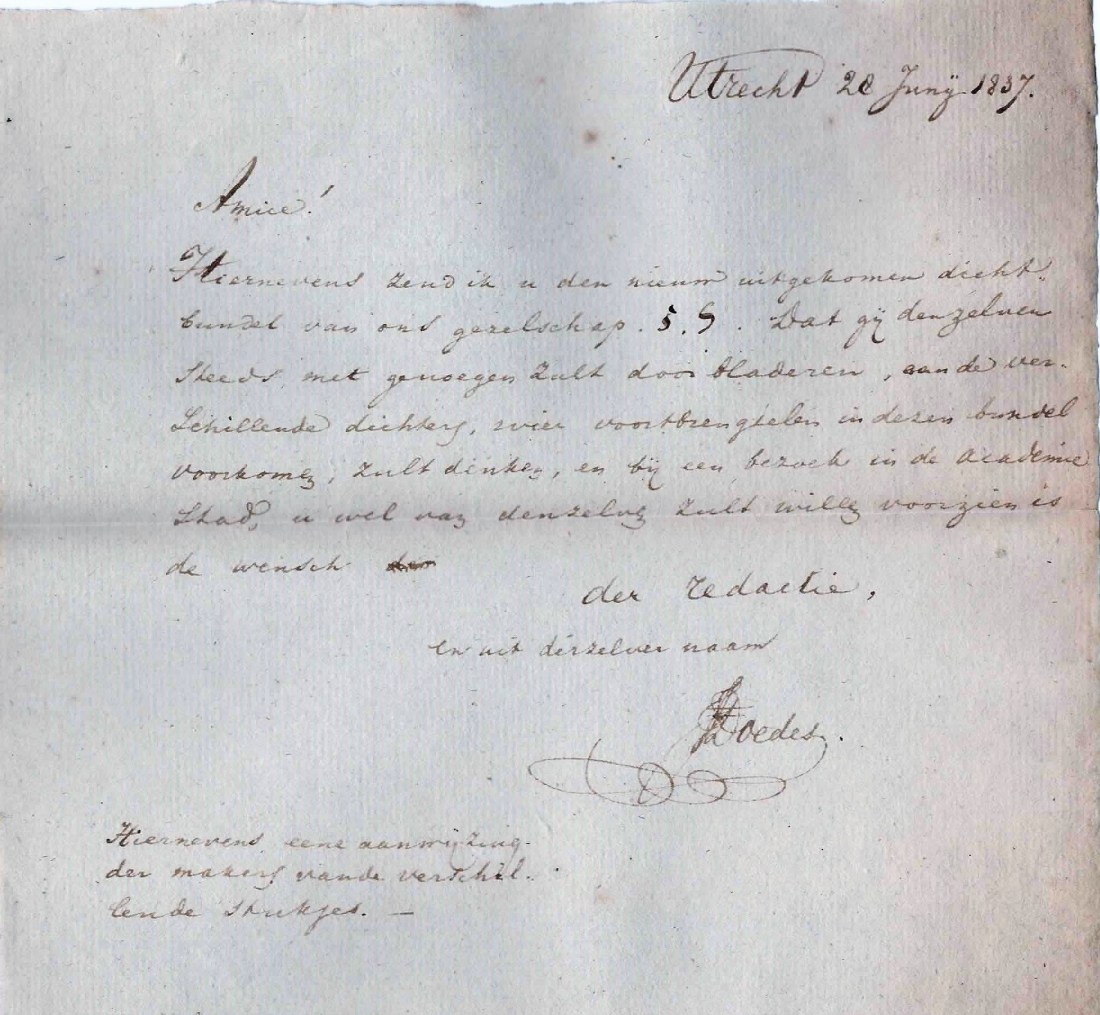 Utrecht 28 Junij 1837.
Amice!
Hiernevens zend ik u den nieuw uitgekomen dicht-
bundel van ons gezelschap. 5. S. Dat gij denzelven
steeds met genoegen zult doorbladeren, aan de ver-
schillende dichters, wier voortbrengselen in dezen bundel
voorkomen, zult denken, en bij een bezoek in de academie
stad, u wel van denzelven zult willen voorzien is
de wensch
der redactie,
en uit derzelver naam
JI Doedes.
Hiernevens eene aanwijzing
der makers van de verschil-
lende stukjes. —